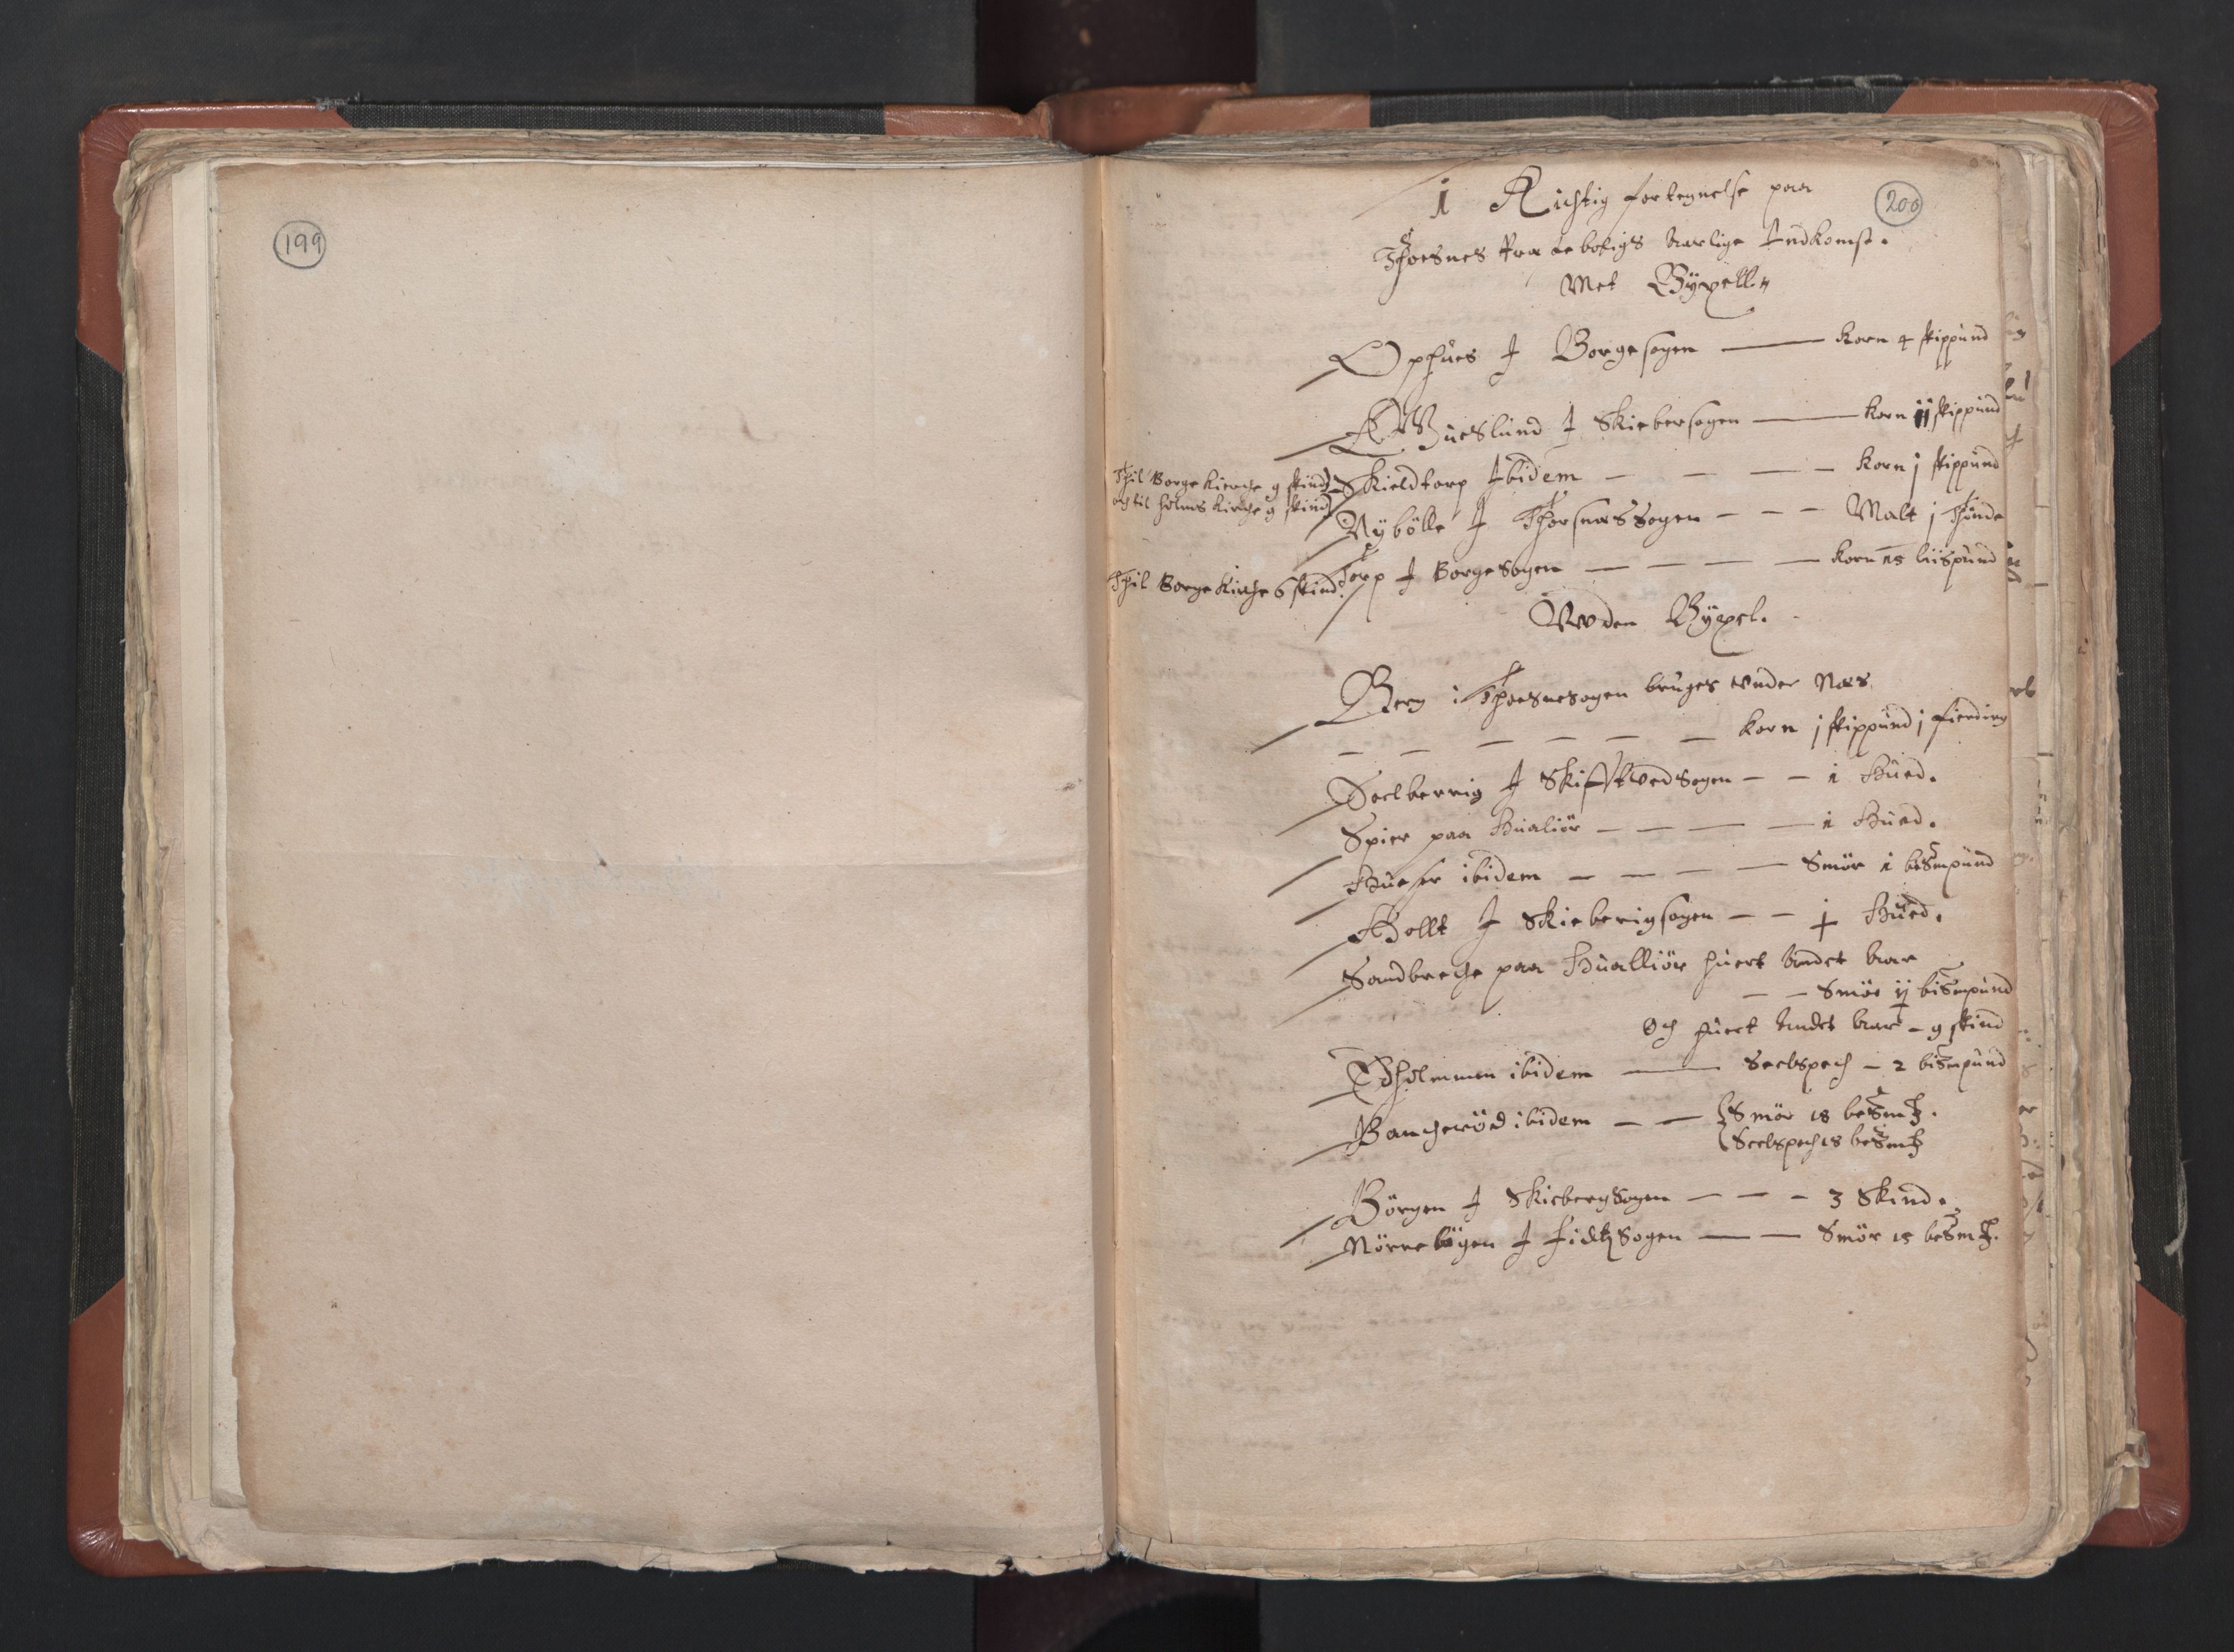 199
200
1 Richtig fortegnelse paa
Thorsnes Præsteboligs Aarlige Indkomst.
Met Byxell.
Ophues I Borgesogen — korn 4 skippund
Hueslund I Skiebersogen — korn ij skippund
Thil Borge Kircke 9 skind
och til Holms Kircke 9 skind
Skieldtorp Ibidem — — — — korn j skippund
Nybölle I Thorsnæssogen — — — Malt j Thönde
Thil Borge Kircke 6 skind.
Torp I Borgesogen — — — — korn 15 liispund
Wden Byxel.
Berg i Thorsnesogen bruges vnder Næs
— — — — — — korn j skippund j fierding
Soelberrig I Skifftvedsogen — — 1 Hued.
Spier paa Hualiör — — — — 1 Hued.
Hueser ibidem — — — — Smör 1 besmpund
Hollt I Skieberigsogen — — Hued.
Sandbrecke paa Hualliör huert Andet Aar
— — Smör ij bismpund
Och huert Andet Aar — 9 skind
Ödholmmen ibidem — Seelspech — 2 bismpund
Bangeröd ibidem — — Smör 18 besm℔.
Seelspech 18 besm℔
Börgen I Skiebergsogen — — — 3 Skind.
Nörre I Sogen — — Smör 15 besm℔.